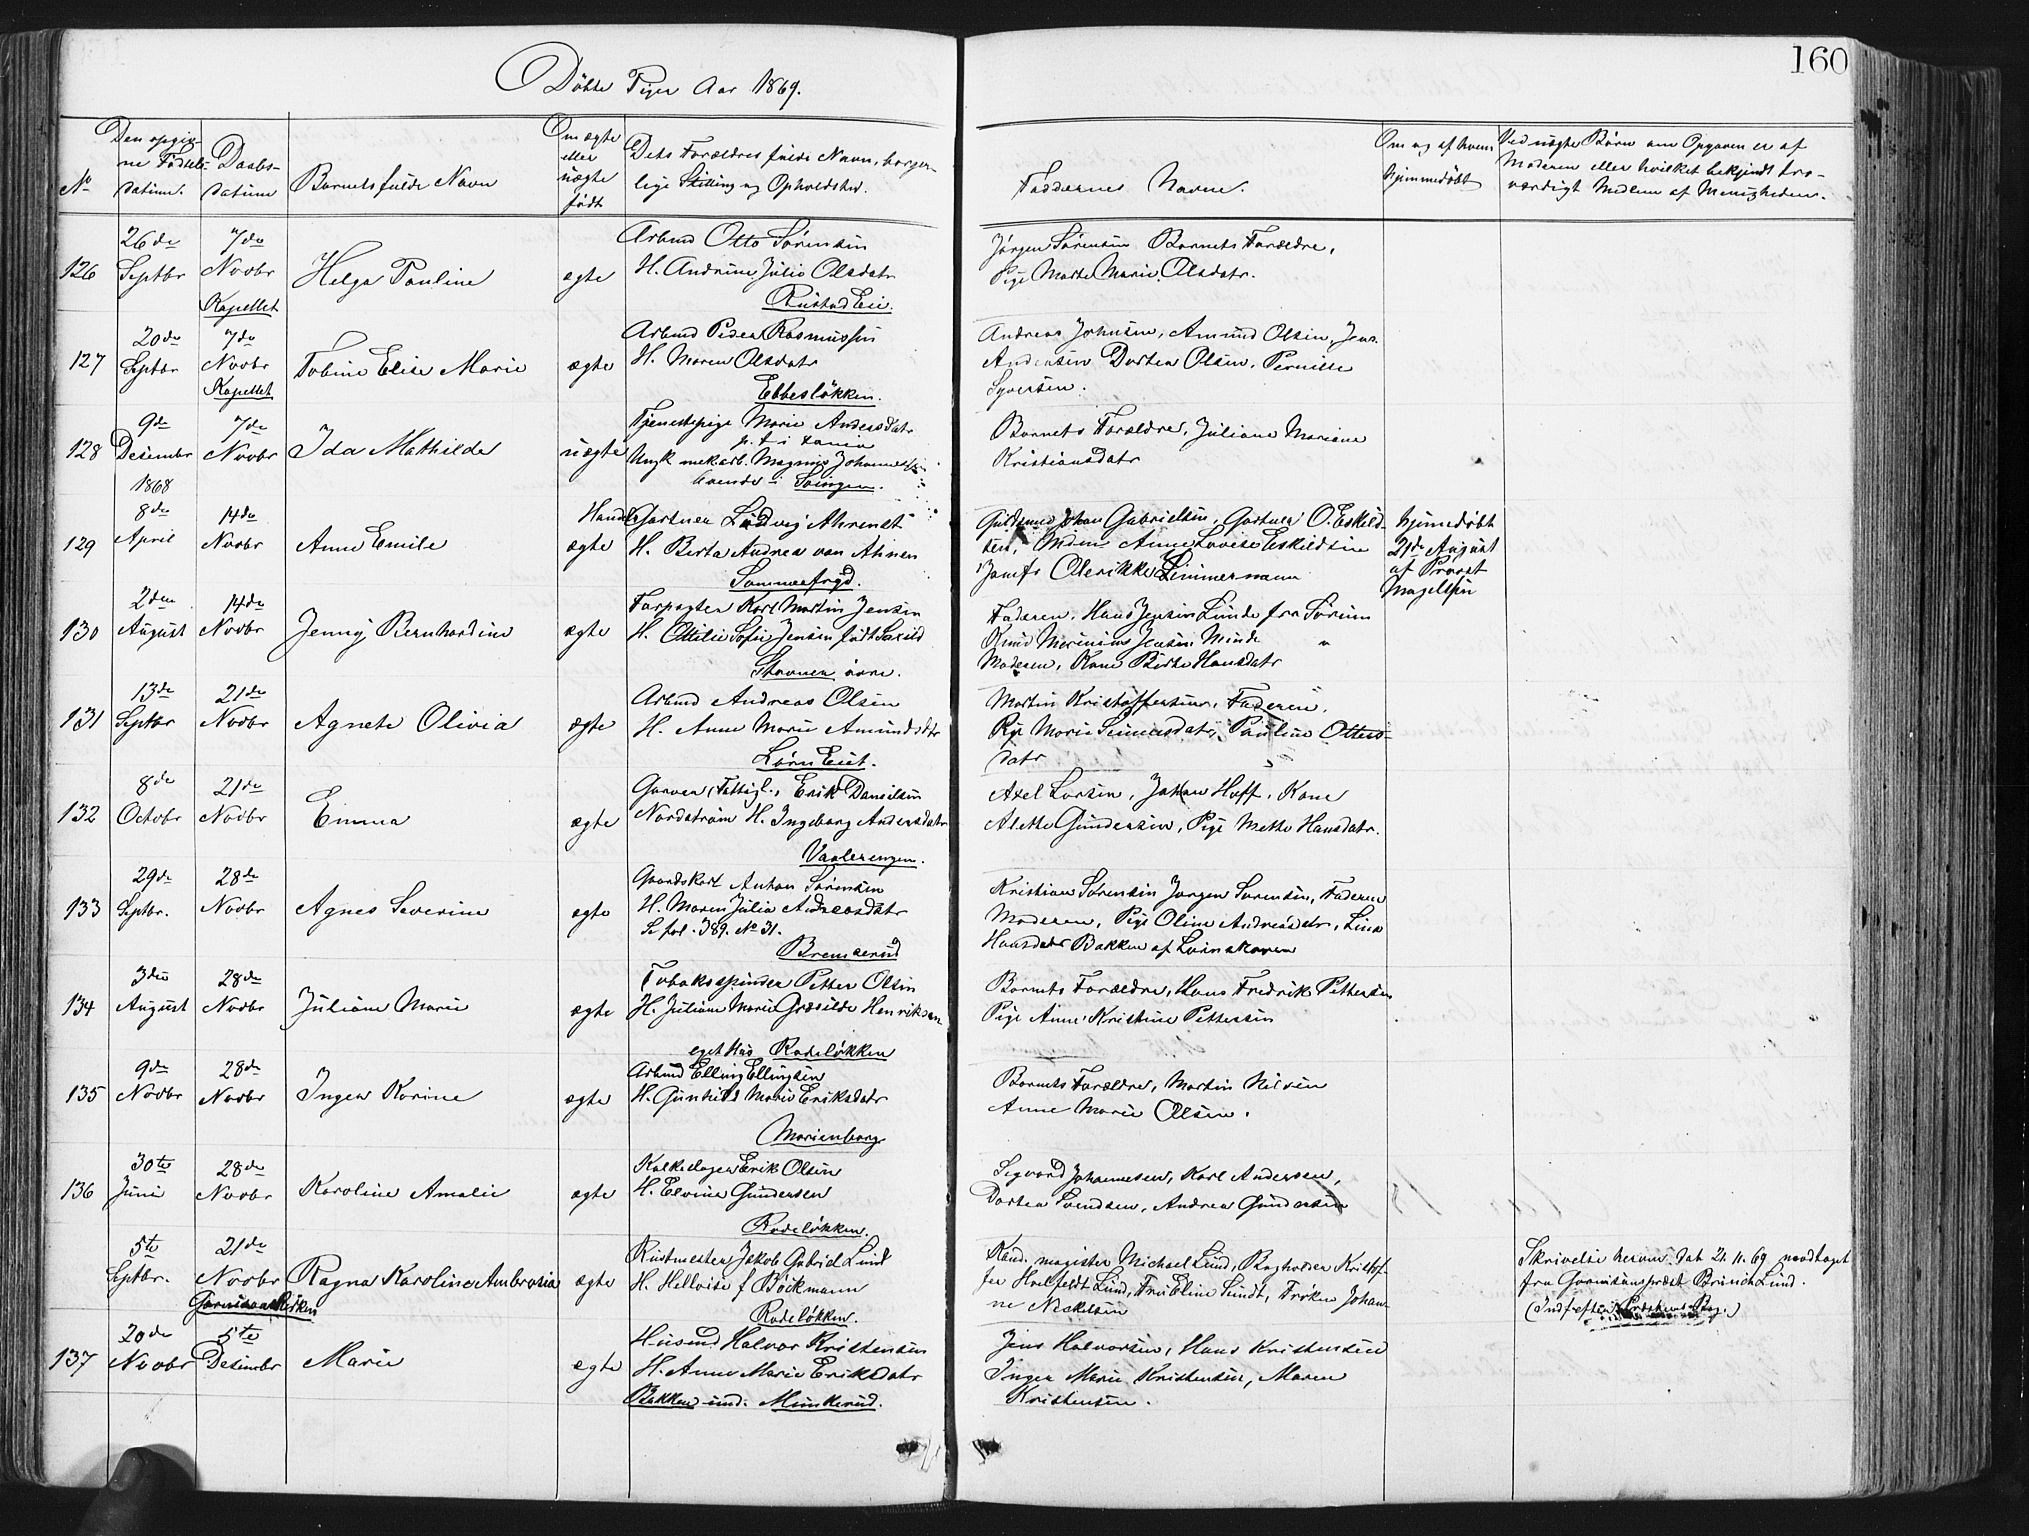 160
Döbte Piger Aar 1869.
No
Den opgiv-
ne Fødsels-
datum.
Daabs-
datum
Barnets fulde Navn
Om ægte
eller
uægte
født
Dets Forældres fulde Navn, borger-
lige Stilling og Opholdsted.
Faddernes Navne.
Om og af hvem
hjemmedøbt
Ved uægte Børn om Opgaven er af
Moderen eller hvilket bekjendt tro-
værdigt Medlem af Menigheden.
126
26de
Septbr
7de
Novbr
Kapellet
Helga Pauline
ægte
Arbmd Otto Sørensen
H. Andrine Julie Olsdatr
Rustad Eie.
Jørgen Sørensen Barnets Forældre,
Pige Marte Marie Olsdatr.
127
20de
Septbr
7de
Novbr
Kapellet
Tobine Elise Marie
ægte
Arbmd Peder Rasmussen
H. Maren Olsdatr
Ebbesløkken.
Andreas Johnsen, Amund Olsen, Jens
Andersen Dortea Olsen, Pernille
Syversen.
128
9de
Desember
1868
7de
Novbr
Ida Mathilde
uægte
Tjenestepige Marie Andersdatr
p. t. i
Ungk mek.arb. Magnus Johannessen
boende i Svingen.
Barnets Forældre, Juliane Mariane
Kristiansdatr
129
8de
April
14de
Novbr
Anna Emilie
ægte
Handelsgartner Ludvig Ahrendt
H. Berta Andrea van Ahnen
Sommerfryd.
Guldsmed Johan Gabrielsen, Gartner O. Eskild-
sen, Anne Lovise Eskildsen
Jomfr Olerikke Zimmermann
hjemmedøbt
21de August
af Provst
Magelssen
130
2den
August
14de
Novbr
Jenny Bernhardine
ægte
Forpagter Karl Martin Jensen
H. Ottilie Sofie Jensen født Saxild
Stovner øvre.
Faderen, Hans Jensen Lunde fra Sørum
Knud Marinius Jensen Minde "
Moderen, Kone Birthe Hansdatr
131
13de
Septbr
21de
Novbr
Agnete Olivia
ægte
Arbmd Andreas Olsen
H. Anne Marie Amundsdtr
Lørn Eiet.
Martin Kristoffersen, Faderen,
Pge Marie Simensdatr, Pauline Otters-
datr
132
8de
Octobr
21de
Novbr
Emma
ægte
Garver, (Fattigl.) Erik Danielsen
Nordstrøm H. Ingeborg Andersdatr
Vaalerengen.
Axel Larsen, Johan Hoff, Kone
Alette Gundersen, Pige Mette Hansdatr.
133
29de
Septbr.
28de
Novbr
Agnes Severine
ægte
Gaardskarl Anton Sørensen
H. Maren Julia Andreasdatr
Se fol. 389. No 31.
Bremserud
Kristian Sørensen Jørgen Sørensen, Faderen
Moderen, Pige Oline Andreasdatr, Lina
Hansdatr Bakken af Lørenskoven
134
3die
August
28de
Novbr
Juliane Marie
ægte
Tobaksspinder Petter Olsen
H. Juliane Marie Græsilde Henriksen
eget Hus Rodeløkken
Barnets Forældre, Hans Fredrik Pettersen
Pige Anne Kristine Pettersen
135
9de
Novbr
28de
Novbr
Inger Karine
ægte
Arbmd Elling Ellingsen
H. Gunhild Marie Eriksdatr
Marienborg
Barnets Forældre, Martin Nilsen
Anne Marie Olsen.
136
30te
Juni
28de
Novbr
Karoline Amalie
ægte
Kalkslager Erik Olsen
H. Elvine Gundersen
Rodeløkken.
Segvard Johannesen, Karl Andersen,
Dortea Svendsen, Andrea Gundersen
5te
Septbr.
21de
Novbr
Garnisonskirken
Ragna Karoline Ambrosia
ægte
Rustmester Jakob Gabriel Lund
H. Helloise f Böckmann
Rodeløkken.
Kand. magister Michael Lund, Bogholder Kristof-
fer Holfeldt Lund, Fru Eline Lundt, Frøken Johan-
ne Nickelsen
Skrivelse herom dat 21. 11. 69 modtaget
fra Garnisonspræst Brinch Lund.
(Indf efter Bog.)
137
20de
Novbr
5te
Desember
Marie
ægte
Husmd Halvor Kristensen
H. Anne Marie Eriksdatr
Bakken und: Munkerud.
Jens Halvorsen, Hans Kristensen
Inger Marie Kristensen, Maren
Kristensen.